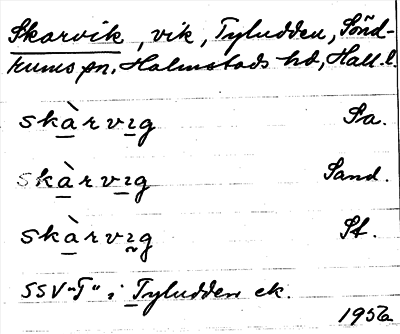 Skarvik, vik, Tyludden, Sönd-
rums sn, Halmstads hd, Hall. l.
skàrvıg Sa.
skàrvıg Sand.
skàrvıg St.
SSV "T" i Tyludden ek.
1956